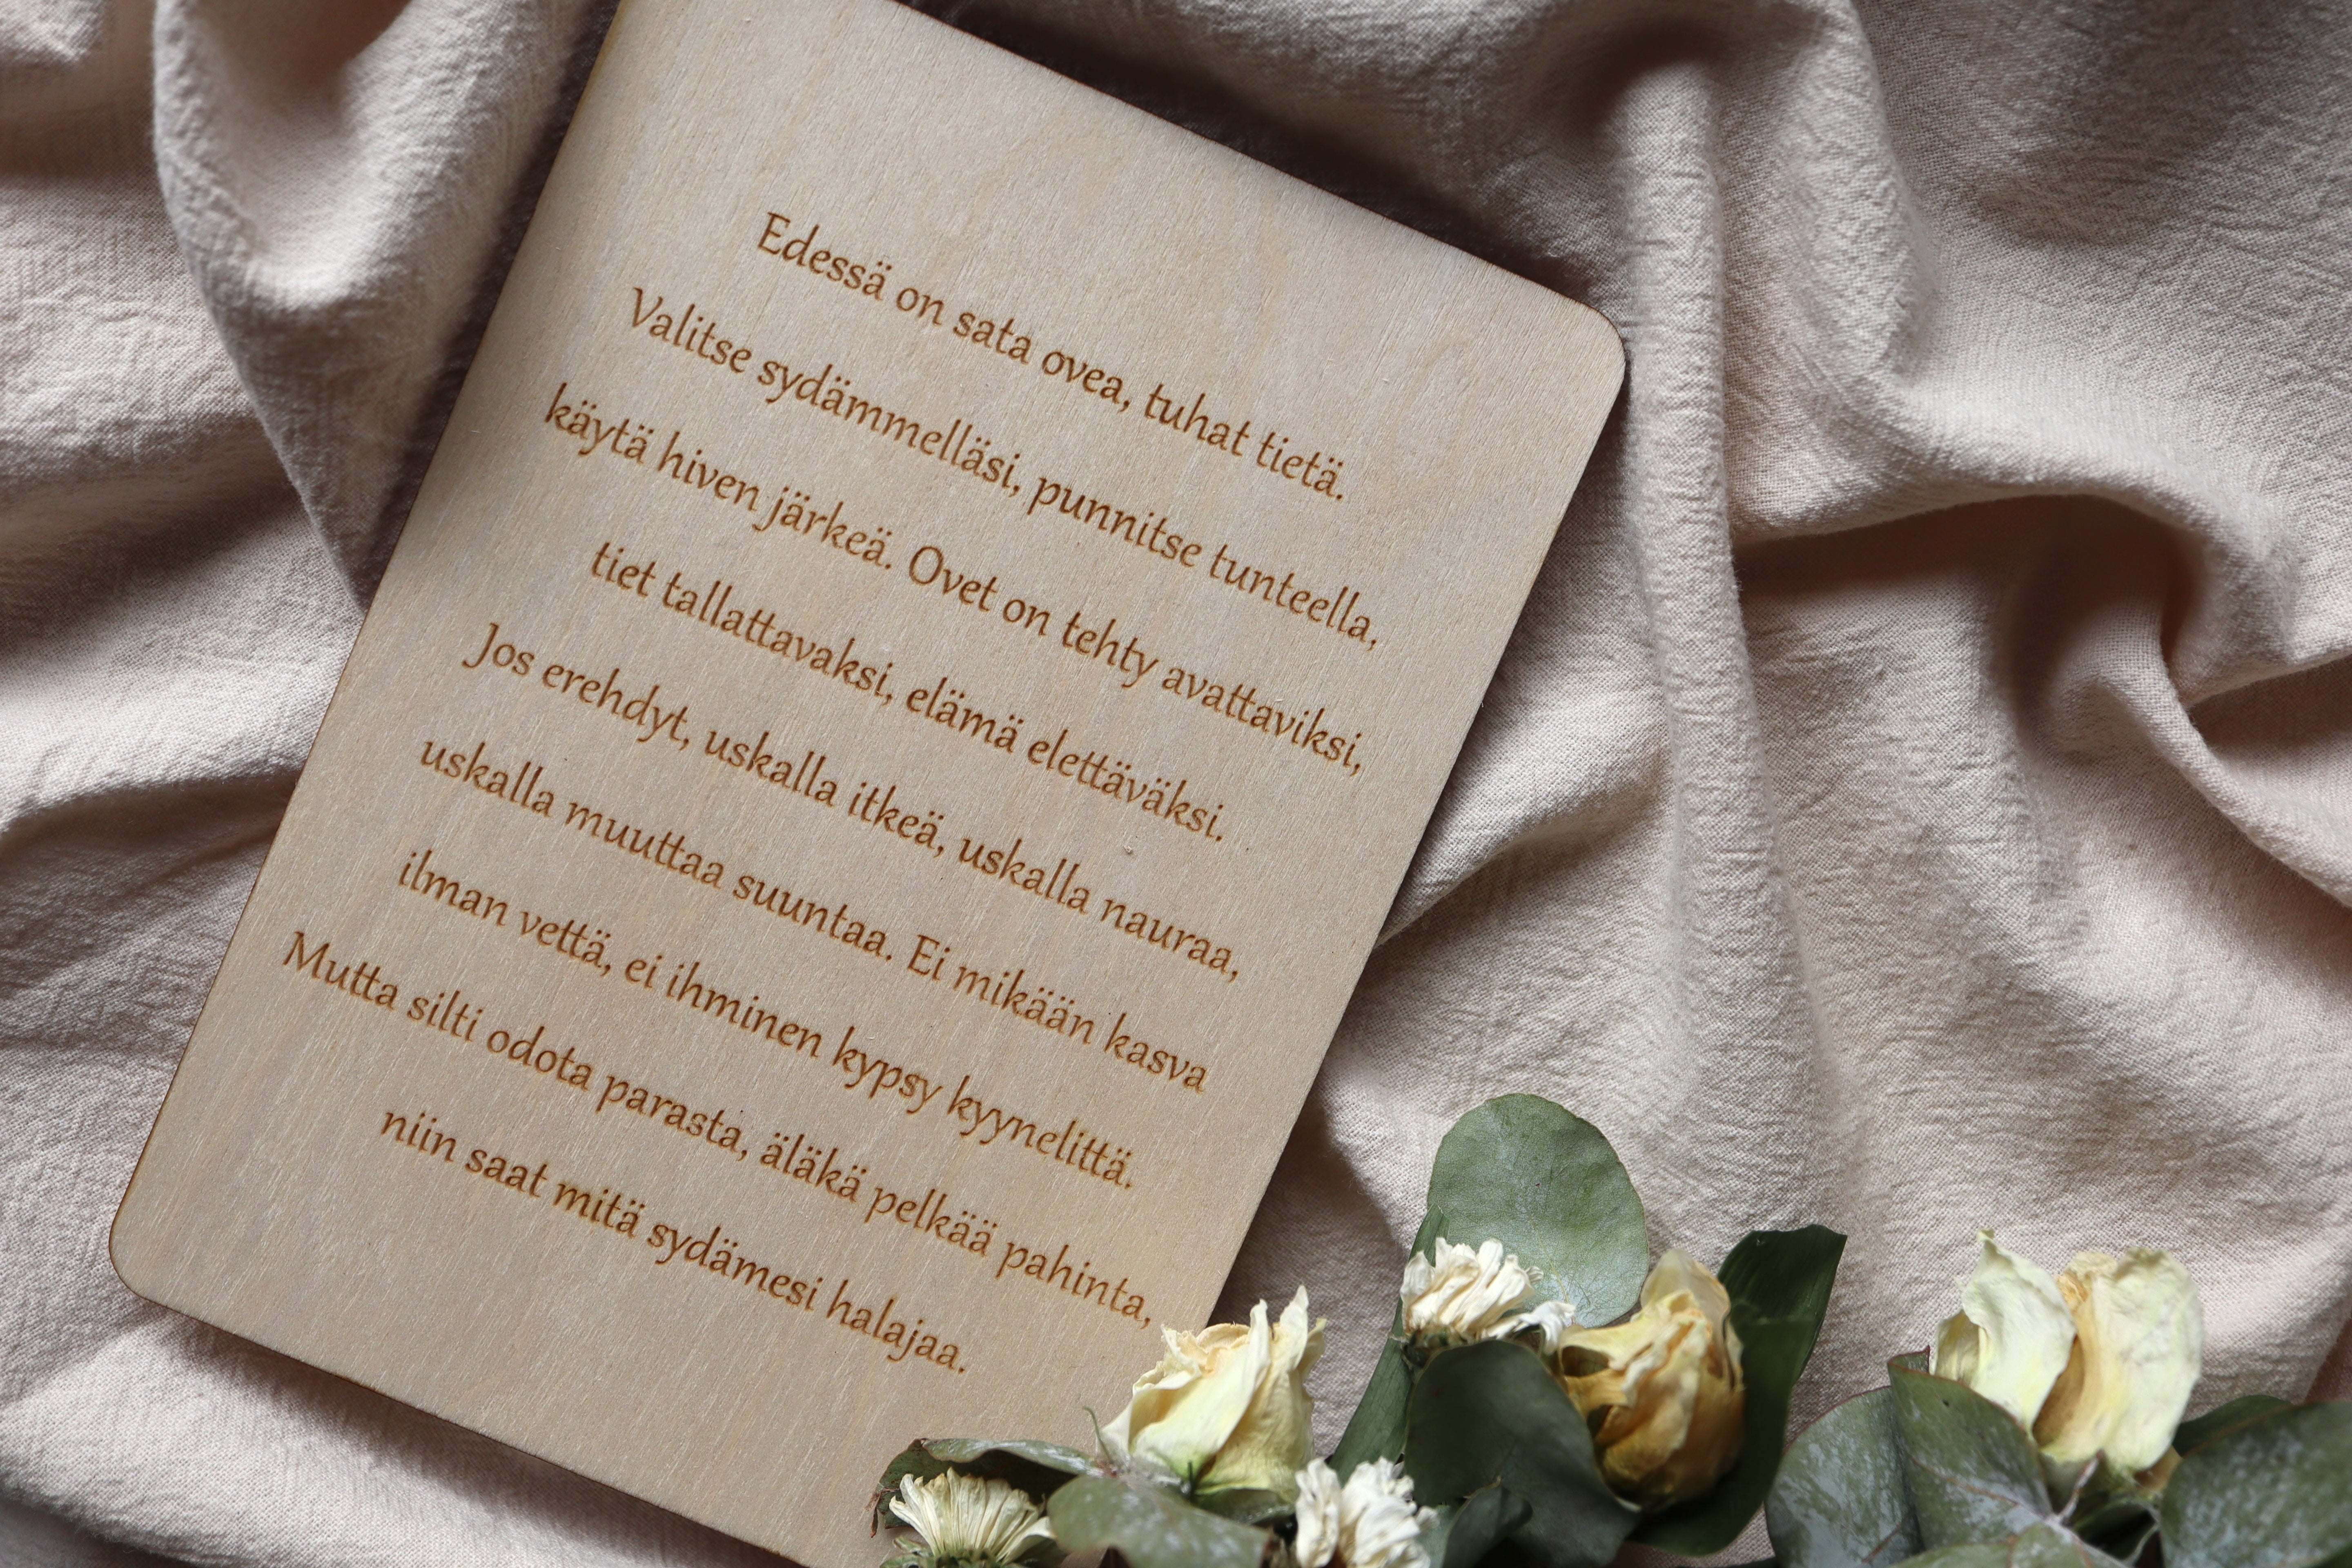 Edessä on sata ovea, tuhat tietä.
Valitse sydämmelläsi, punnitse tunteella,
käytä hiven järkeä. Ovet on tehty avattaviksi,
tiet tallattavaksi, elämä elettäväksi.
Jos erehdyt, uskalla itkeä, uskalla nauraa,
uskalla muuttaa suuntaa. Ei mikään kasva
ilman vettä, ei ihminen kypsy kyynelittä.
Mutta silti odota parasta, äläkä pelkää pahinta,
niin saat mitä sydämesi halajaa.